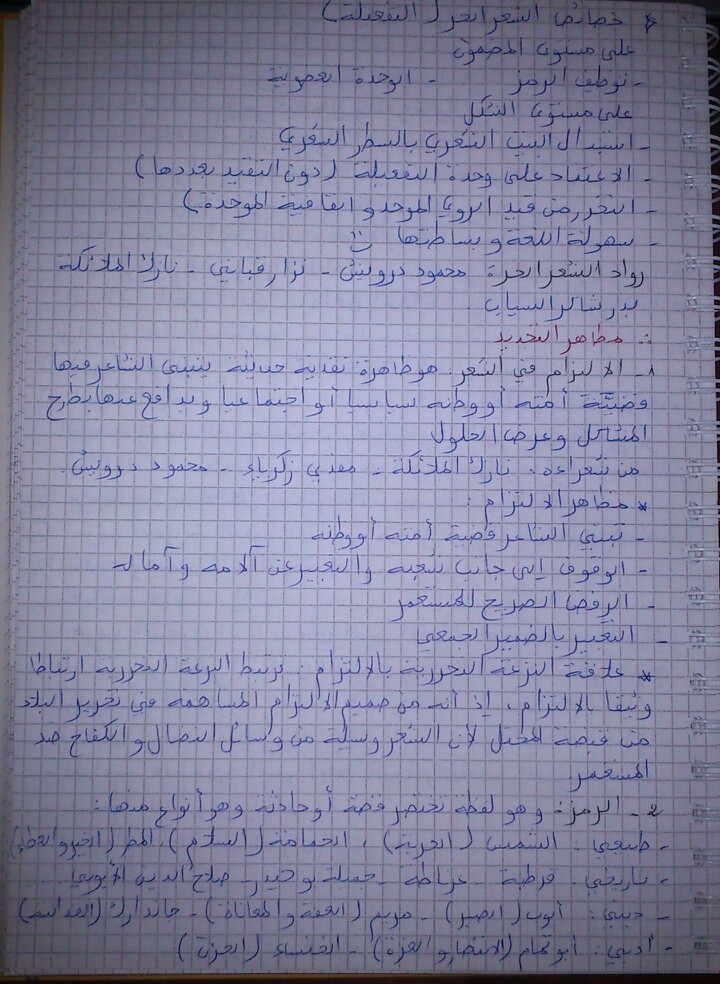 * خصائص الشعر الحر (التفعيلة)
على مستوى المضمون
- توظيف الرمز - الوحدة العضوية
على مستوى الشكل
- استبدال البيت الشعري بالسطر الشعري
- الاعتماد على وحدة التفعيلة (دون التقيد بعددها)
- التحرر من قيد الروي الموحد والقافية الموحدة)
- سهولة اللغة وبساطتها
رواد الشعر الحر: محمود درويش - نزار قباني - نازك الملائكة
بدر شاكر السياب.
مظاهر التجديد
1- الالتزام في الشعر: هو ظاهرة نقدية حديثة يتبنى الشاعر فيها
قضية أمته أو وطنه سياسيا أو اجتماعيا ويدافع عنها بطرح
المشاكل وعرض الحلول
من شعراءه: نازك الملائكة - مفدي زكرياء - محمود درويش.
* مظاهر الالتزام:
- تبني الشاعر قضية أمته أو وطنه
- الوقوف إلى جانب شعبه والتعبير عن آلامه وآماله
- الرفض الصريح للمستعمر
- التعبير بالضمير الجمعي
* علاقة النزعة التحررية بالالتزام: ترتبط النزعة التحررية ارتباطا
وثيقا بالالتزام، إذ أنه من صميم الالتزام المساهمة في تحرير البلاد
من قبضة المحتل لأن الشعر وسيلة من وسائل النضال والكفاح ضد
المستعمر.
2- الرمز: وهو لفظة تختصر قصة أو حادثة وهو أنواع منها:
- طبيعي: الشمس (الحرية)، الحمامة (السلام)، المطر (الخير والعطاء)
- تاريخي: قرطبة - غرناطة - جميلة بوحيرد - صلاح الدين الأيوبي.
- ديني: أيوب (الصبر) - مريم (العفة والمعاناة) - جاندارك
- أدبي: أبو تمام (الانتصار والعزة) - الخنساء (الحزن)